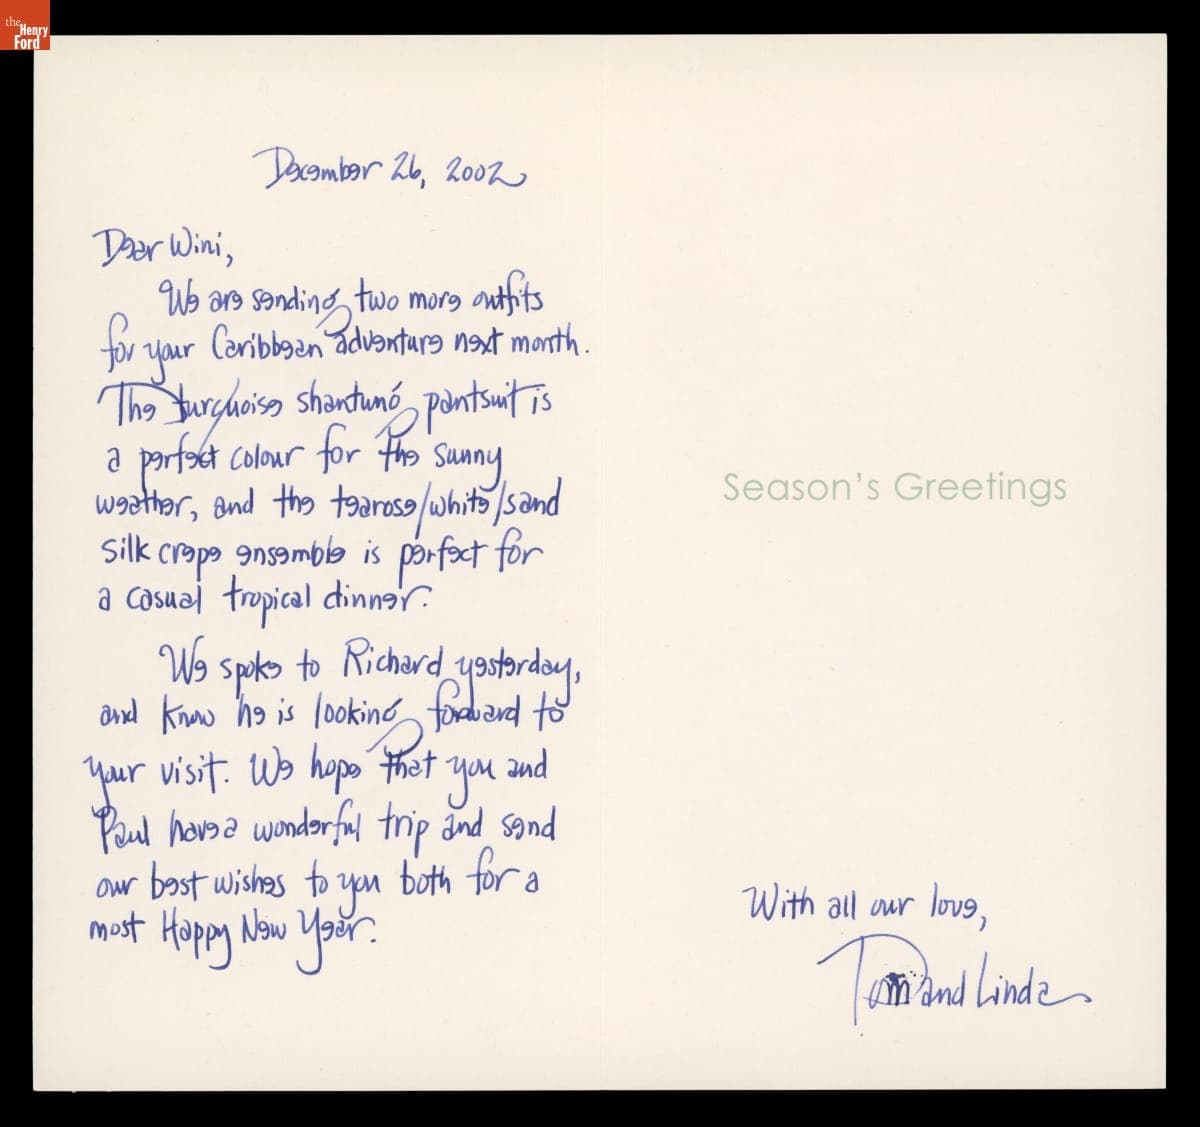 the
Henry
Ford
December 26, 2002
Dear Wini,
We are sending two more outfits
for your Caribbean adventure next month.
The turquoise shantung pantsuit is
a perfect colour for the sunny
weather, and the tearose/white/sand
silk crepe ensemble is perfect for
a casual tropical dinner.
We spoke to Richard yesterday,
and know he is looking forward to
your visit. We hope that you and
Paul have a wonderful trip and send
our best wishes to you both for a
most Happy New Year.
Season's Greetings
With all our love,
Tom and Linda